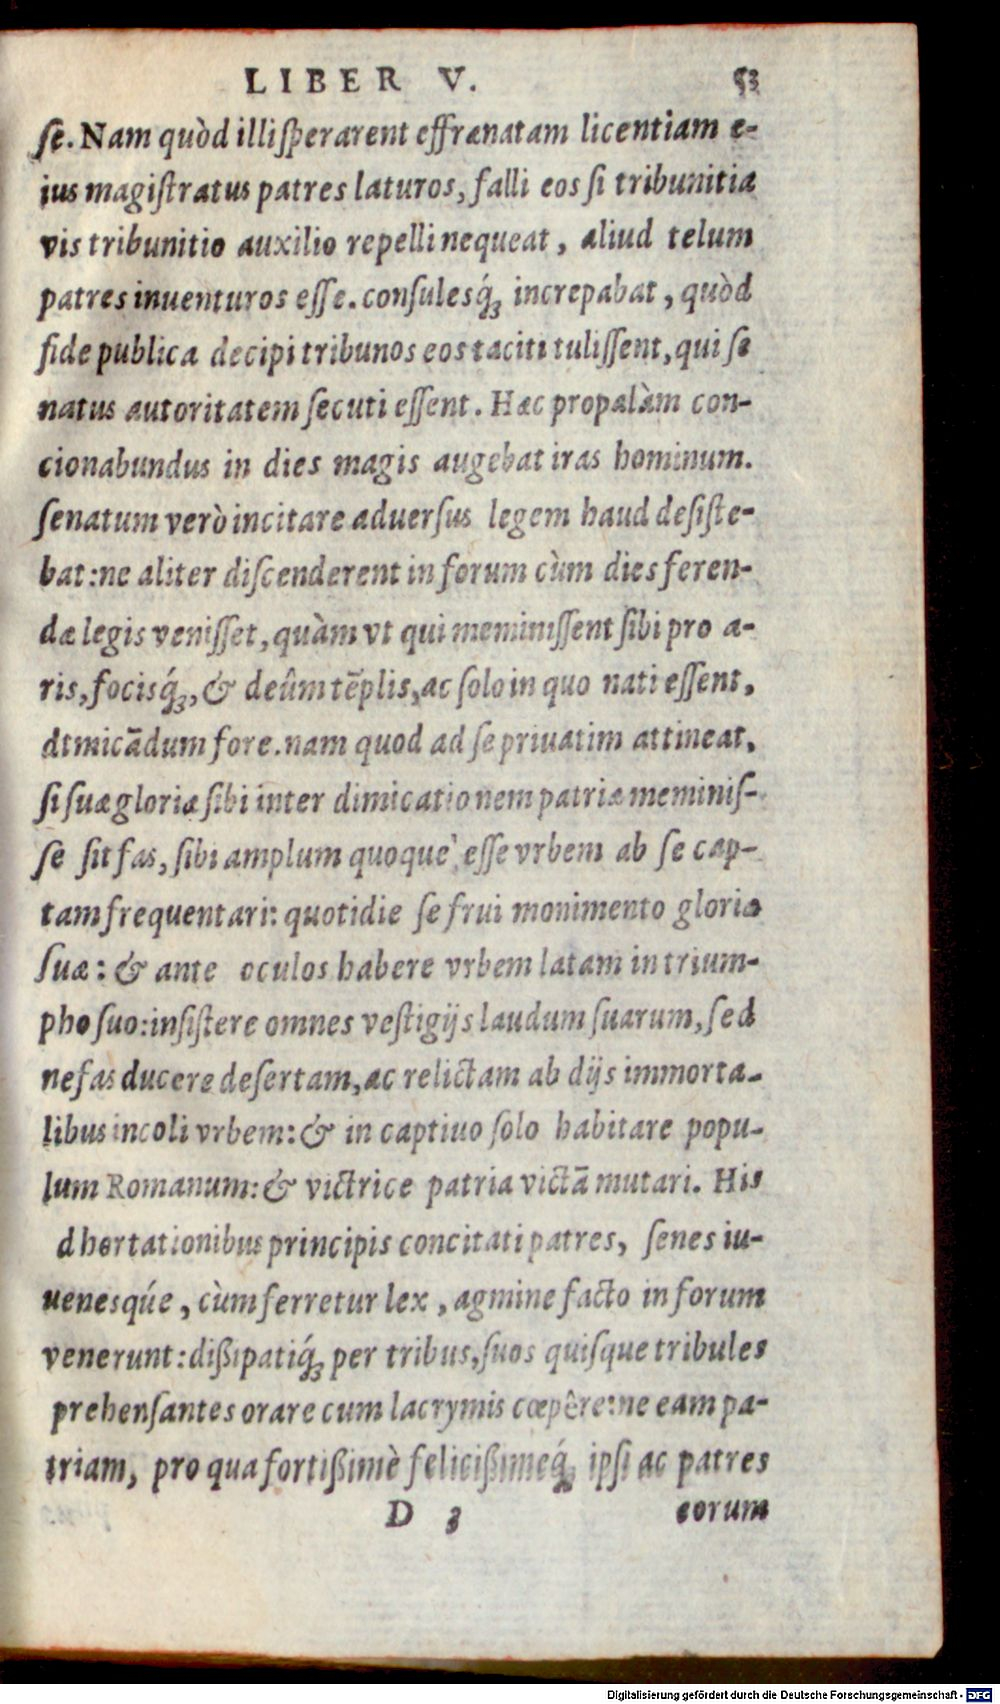 LIBER V. 53
ſe. Nam quòd illi ſperarent effrænatam licentiam e-
ius magiſtratus patres laturos, falli eos ſi tribunitiæ
vis tribunitio auxilio repelli nequeat, aliud telum
patres inuenturos eſſe. conſulesq́ꝫ increpabat, quòd
fide publica decipi tribunos eos taciti tuliſſent, qui ſe
natus autoritatem ſecuti eſſent. Hæc propalàm con-
cionabundus in dies magis augebat iras hominum.
ſenatum verò incitare aduerſus legem haud deſiſte-
bat: ne aliter diſcenderent in forum cùm dies feren-
dæ legis veniſſet, quàm vt qui meminiſſent ſibi pro a-
ris, focisq́ꝫ, & deûm tẽplis, ac ſolo in quo nati eſſent,
dimicãdum fore. nam quod ad ſe priuatim attineat,
ſi ſuæ gloriæ ſibi inter dimicationem patriæ meminiſ-
ſe ſit fas, ſibi amplum quoque eſſe vrbem ab ſe cap-
tam frequentari: quotidie ſe frui monimento gloriæ
ſuæ: & ante oculos habere vrbem latam in trium-
pho ſuo: inſiſtere omnes veſtigijs laudum ſuarum, ſed
nefas ducere deſertam, ac relictam ab dijs immorta-
libus incoli vrbem: & in captiuo ſolo habitare popu-
lum Romanum: & victrice patria victã mutari. His
dhortationibus principis concitati patres, ſenes iu-
uenesq́ue, cùm ferretur lex, agmine facto in forum
venerunt: dißipatiq́ꝫ per tribus, ſuos quiſque tribules
prehenſantes orare cum lacrymis cœpêre: ne eam pa-
triam, pro qua fortißimè felicißimeq́ꝫ ipſi ac patres
D 3 eorum
Digitalisierung gefördert durch die Deutsche Forschungsgemeinschaft - DFG